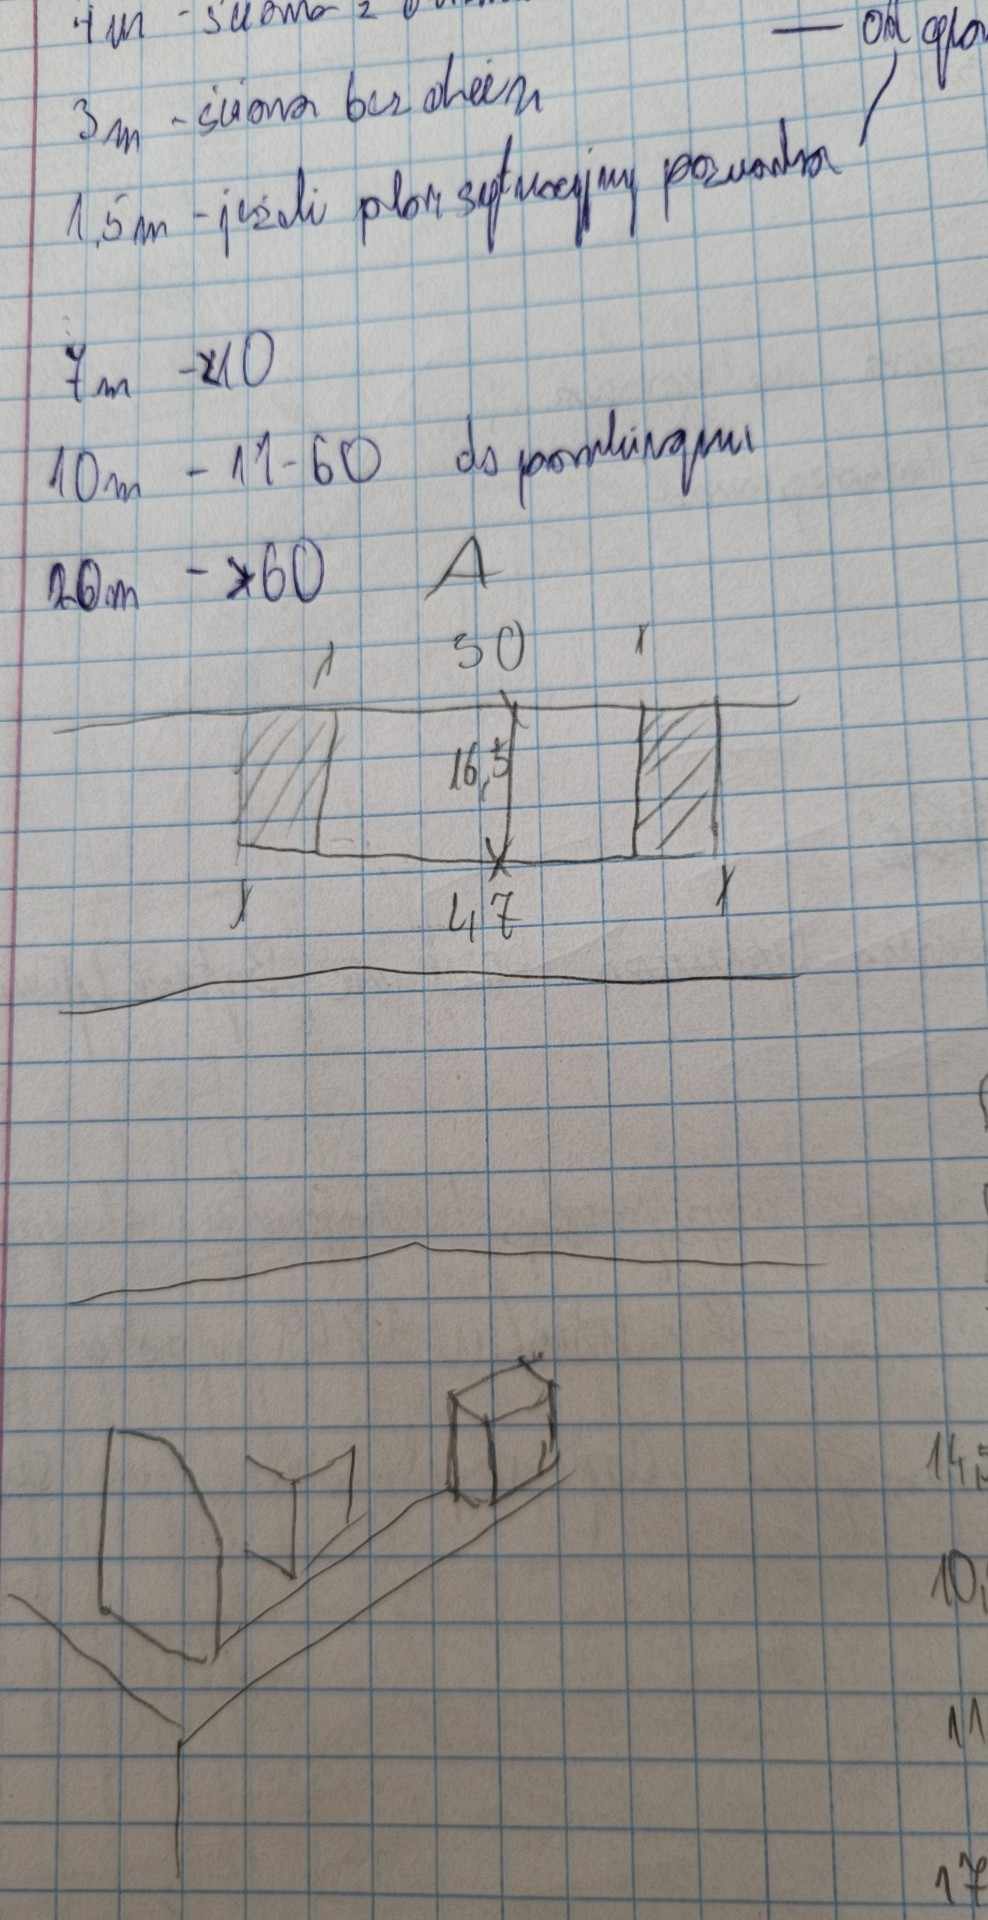 4m - ściana z
— od
3m - ściana bez okien
1,5m - jeżeli plan sytuacyjny pozwala
7m - 10
10m - 11-60 do parkingu
20m - >60
A
30
16,5
47
14,5
10,
11
17